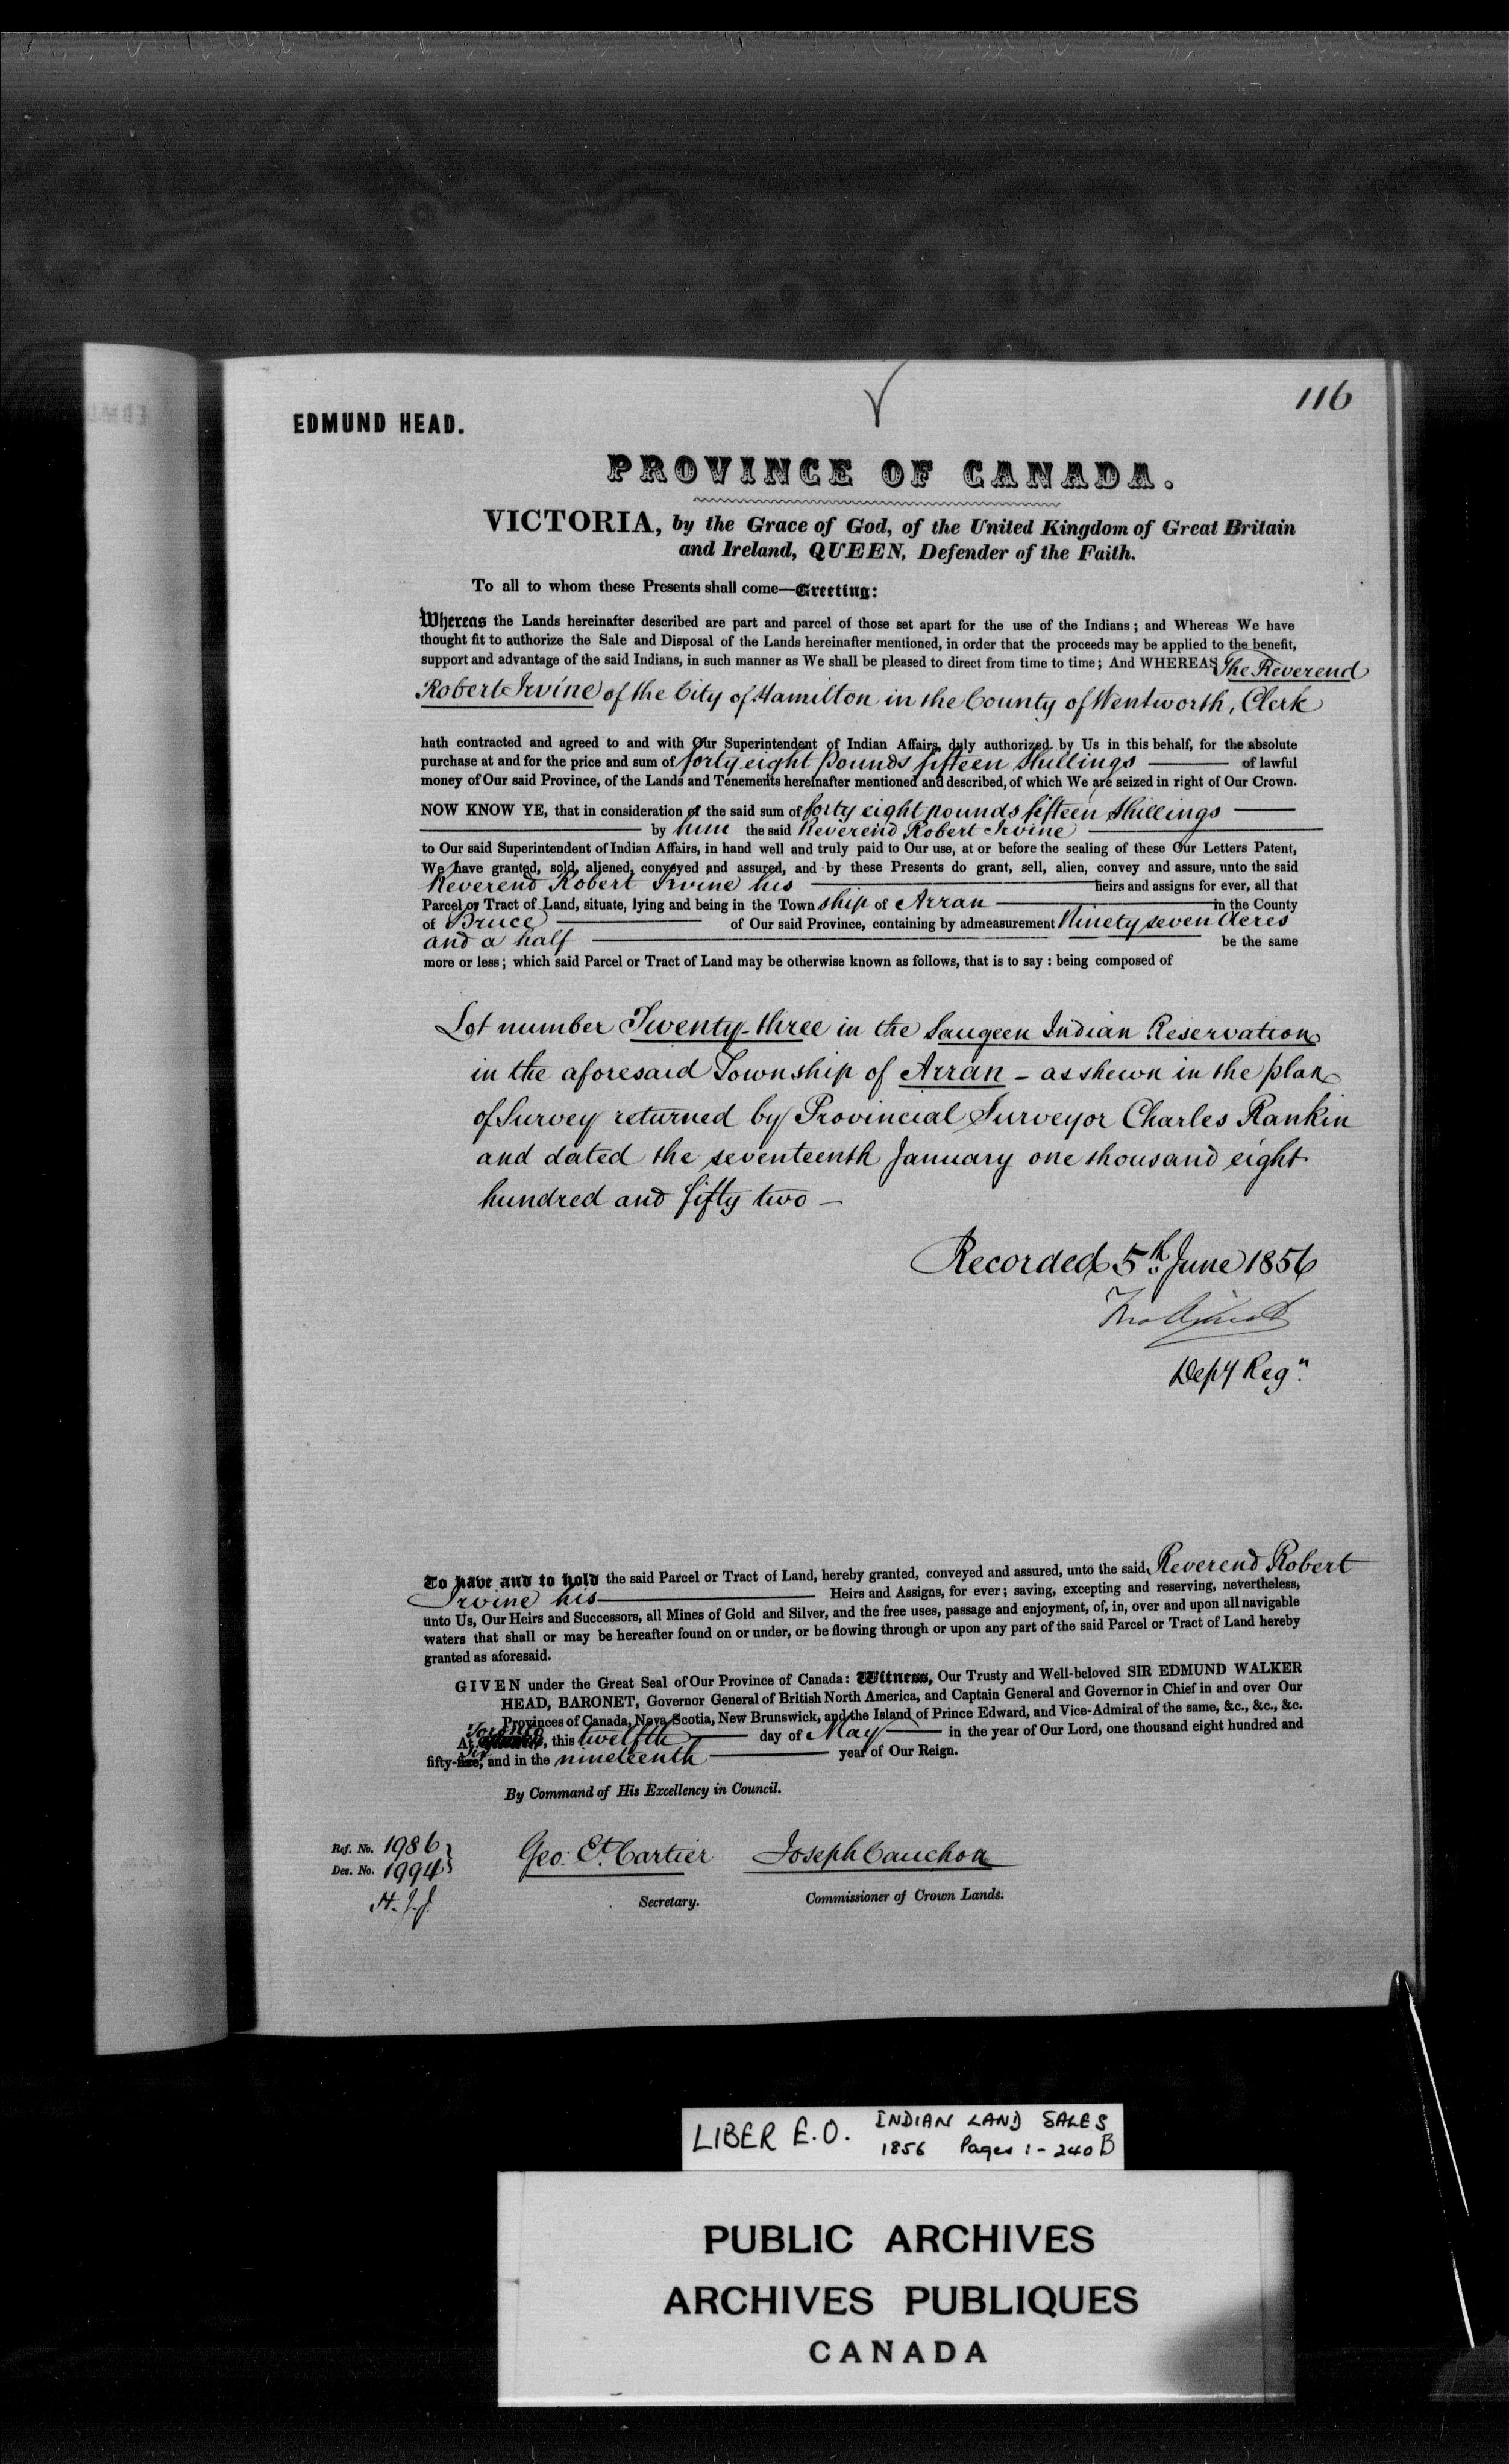 116
EDMUND HEAD.
PROVINCE OF CANADA.
VICTORIA, by the Grace of God, of the United Kingdom of Great Britain
and Ireland, QUEEN, Defender of the Faith.
To all to whom these Presents shall come—Greeting:
Whereas the Lands hereinafter described are part and parcel of those set apart for the use of the Indians; and Whereas We have
thought fit to authorize the Sale and Disposal of the Lands hereinafter mentioned, in order that the proceeds may be applied to the benefit,
support and advantage of the said Indians, in such manner as We shall be pleased to direct from time to time; And WHEREAS The Reverend
Robert Irvine of the City of Hamilton in the County of Wentworth, Clerk
hath contracted and agreed to and with Our Superintendent of Indian Affairs, duly authorized by Us in this behalf, for the absolute
purchase at and for the price and sum of forty eight pounds fifteen Shillings of lawful
money of Our said Province, of the Lands and Tenements hereinafter mentioned and described, of which We are seized in right of Our Crown.
NOW KNOW YE, that in consideration of the said sum of forty eight pounds fifteen Shillings
by him the said Reverend Robert Irvine
to Our said Superintendent of Indian Affairs, in hand well and truly paid to Our use, at or before the sealing of these Our Letters Patent,
We have granted, sold, aliened, conveyed and assured, and by these Presents do grant, sell, alien, convey and assure, unto the said
Reverend Robert Irvine his heirs and assigns for ever, all that
Parcel or Tract of Land, situate, lying and being in the Town ship of Arran in the County
of Bruce of Our said Province, containing by admeasurement Ninety seven Acres
and a half be the same
more or less; which said Parcel or Tract of Land may be otherwise known as follows, that is to say: being composed of
Lot number Twenty-three in the Saugeen Indian Reservation
in the aforesaid Township of Arran - as shewn in the plan
of Survey returned by Provincial Surveyor Charles Rankin
and dated the seventeenth January one thousand eight
hundred and fifty two -
Recorded 5th June 1856
Depy Regr.
To have and to hold the said Parcel or Tract of Land, hereby granted, conveyed and assured, unto the said Reverend Robert
Irvine his Heirs and Assigns, for ever; saving, excepting and reserving, nevertheless,
unto Us, Our Heirs and Successors, all Mines of Gold and Silver, and the free uses, passage and enjoyment, of, in, over and upon all navigable
waters that shall or may be hereafter found on or under, or be flowing through or upon any part of the said Parcel or Tract of Land hereby
granted as aforesaid.
GIVEN under the Great Seal of Our Province of Canada: Witness, Our Trusty and Well-beloved SIR EDMUND WALKER
HEAD, BARONET, Governor General of British North America, and Captain General and Governor in Chief in and over Our
Provinces of Canada, Nova Scotia, New Brunswick, and the Island of Prince Edward, and Vice-Admiral of the same, &c., &c., &c.
At Toronto, this twelfth day of May in the year of Our Lord, one thousand eight hundred and
fifty-six, and in the nineteenth year of Our Reign.
By Command of His Excellency in Council.
Ref. No. 1986
Des. No. 1994
H. J. J.
Geo: Et. Cartier Joseph Cauchon
Secretary. Commissioner of Crown Lands.
LIBER E.O. INDIAN LAND SALES
1856 Pages 1-240B
PUBLIC ARCHIVES
ARCHIVES PUBLIQUES
CANADA